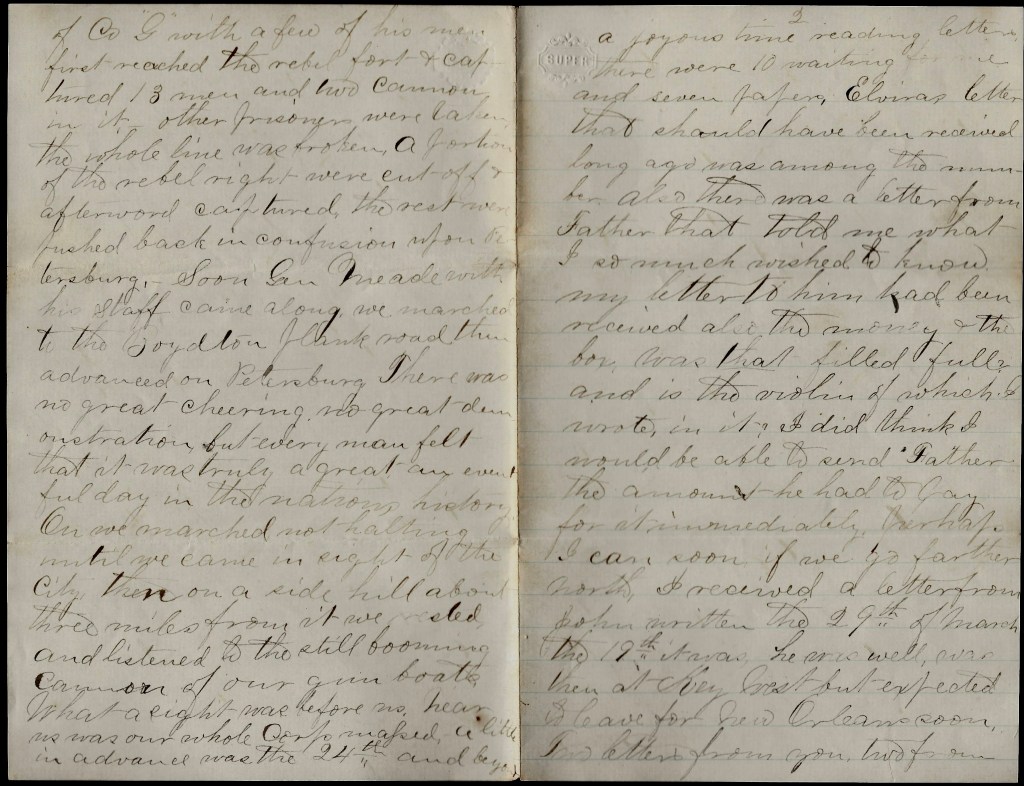 of Co "G" with a few of his men
first reached the rebel fort & cap-
tured 13 men and two cannon
in it, other prisoners were taken
the whole line was broken, A portion
of the rebel right were cut off &
afterword captured, the rest were
pushed back in confusion upon Pe
tersburg,- Soon Gen Meade with
his staff came along, we marched
to the Boydton plank road then
advanced on Petersburg There was
no great cheering, no great dem
onstration, but every man felt
that it was truly a great an event
ful day in the nations history
On we marched not halting
until we came in sight of the
City, then on a side hill about
three miles from it we rested
and listened to the still booming
cannon of our gun boats
What a sight was before us, near
us was our whole Corps massed, a little
in advance was the 24th and beyo
3
SUPER
a joyous time reading letters,
there were 10 waiting for me
and seven papers, Elviras letter
that should have been received
long ago was among the num-
ber, also there was a letter from
Father that told me what
I so much wished to know
my letter to him had been
received also the money & the
box, was that filled full?
and is the violin of which I
wrote, in it? I did think I
would be able to send "Father"
the amount he had to pay
for it immediately, Perhaps
I can soon if we go farther
north, I received a letter from
John written the 29th of March
the 19th it was, he was well, was
then at Key West but expected
to leave for New Orleans soon,
Two letters from you, two from